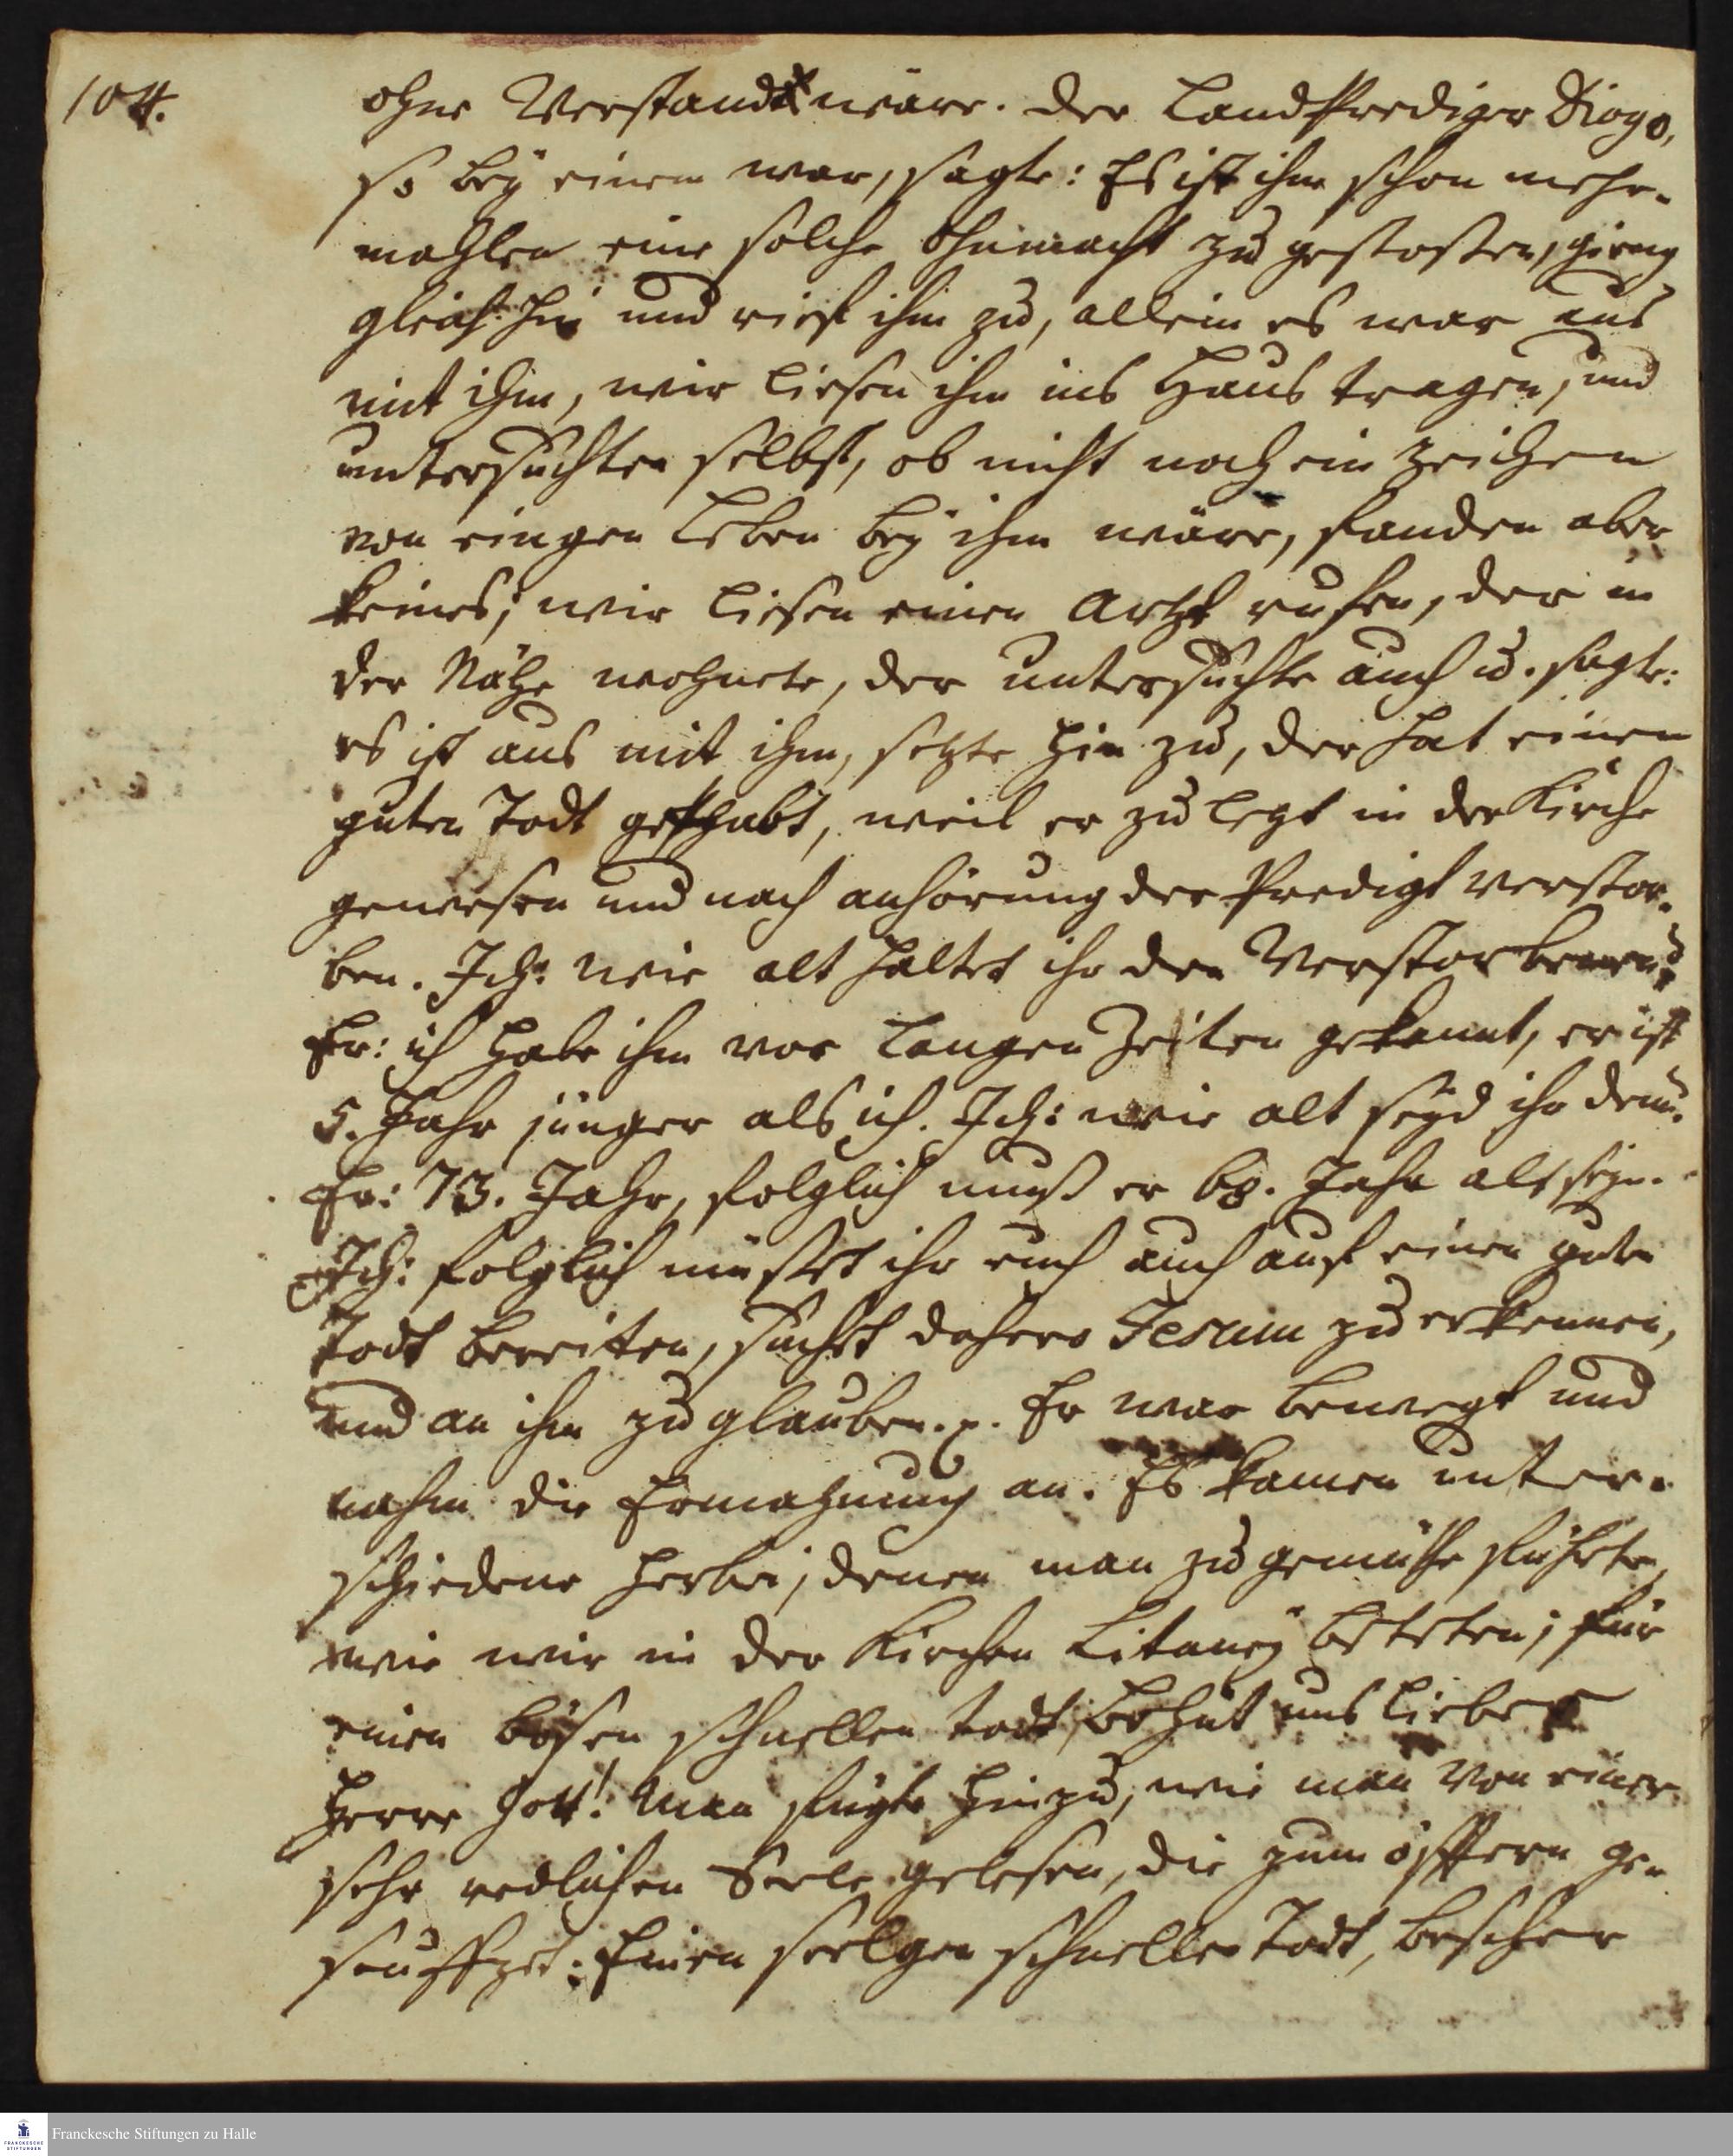 104.
ohne Verstandt wäre. der Landprediger Diogo,
so bey einem war, sagte: Es ist ihm schon mehr-
mahlen eine solche Ohnmacht zu gestoßen, gieng
gleich hin und rief ihm zu, allein es war aus
mit ihm, wir liesen ihn ins Haus tragen, und
untersuchten selbst, ob nicht noch ein Zeichen
von eingen Leben bey ihm wäre, fanden aber
keines; wir liesen einen Artzt rufen, der in
der Nähe wohnete, der untersuchte auch u. sagte:
es ist aus mit ihm, setzte hin zu, der hat einen
guten Todt gehabt, weil er zu letzt in der Kirche
gewesen und nach anhörung der Predigt verstor-
ben. Ich: wie alt haltet ihr den Verstorbenen?
Er: ich habe ihn vor langen Zeiten gekannt, er ist
5. Jahr jünger als ich. Ich: wie alt seyd ihr denn?
Er: 73. Jahr, folglich muß er 68. Jahr alt seyn.
Ich: folglich müsset ihr euch auch auf einen guten
Todt bereiten, suchet dahero Jesum zu erkennen,
und an ihn zu glauben. p. Er war bewegt und
nahm die Ermahnung an. Es kamen unter-
schiedene herbei, denen man zu gemüthe führte,
wie wir in der Kirchen Litaney beteten; für
einen bösen schnellen todt, behüt uns lieber
Herre Gott! Man fügte hinzu, wie man von einer
sehr redlichen Seele gelesen, die zum öfftern ge-
seuffzet: Einen seelgen schnellen Todt, bescher
Franckesche Stiftungen zu Halle
FRANCKESCHE
STIFTUNGEN